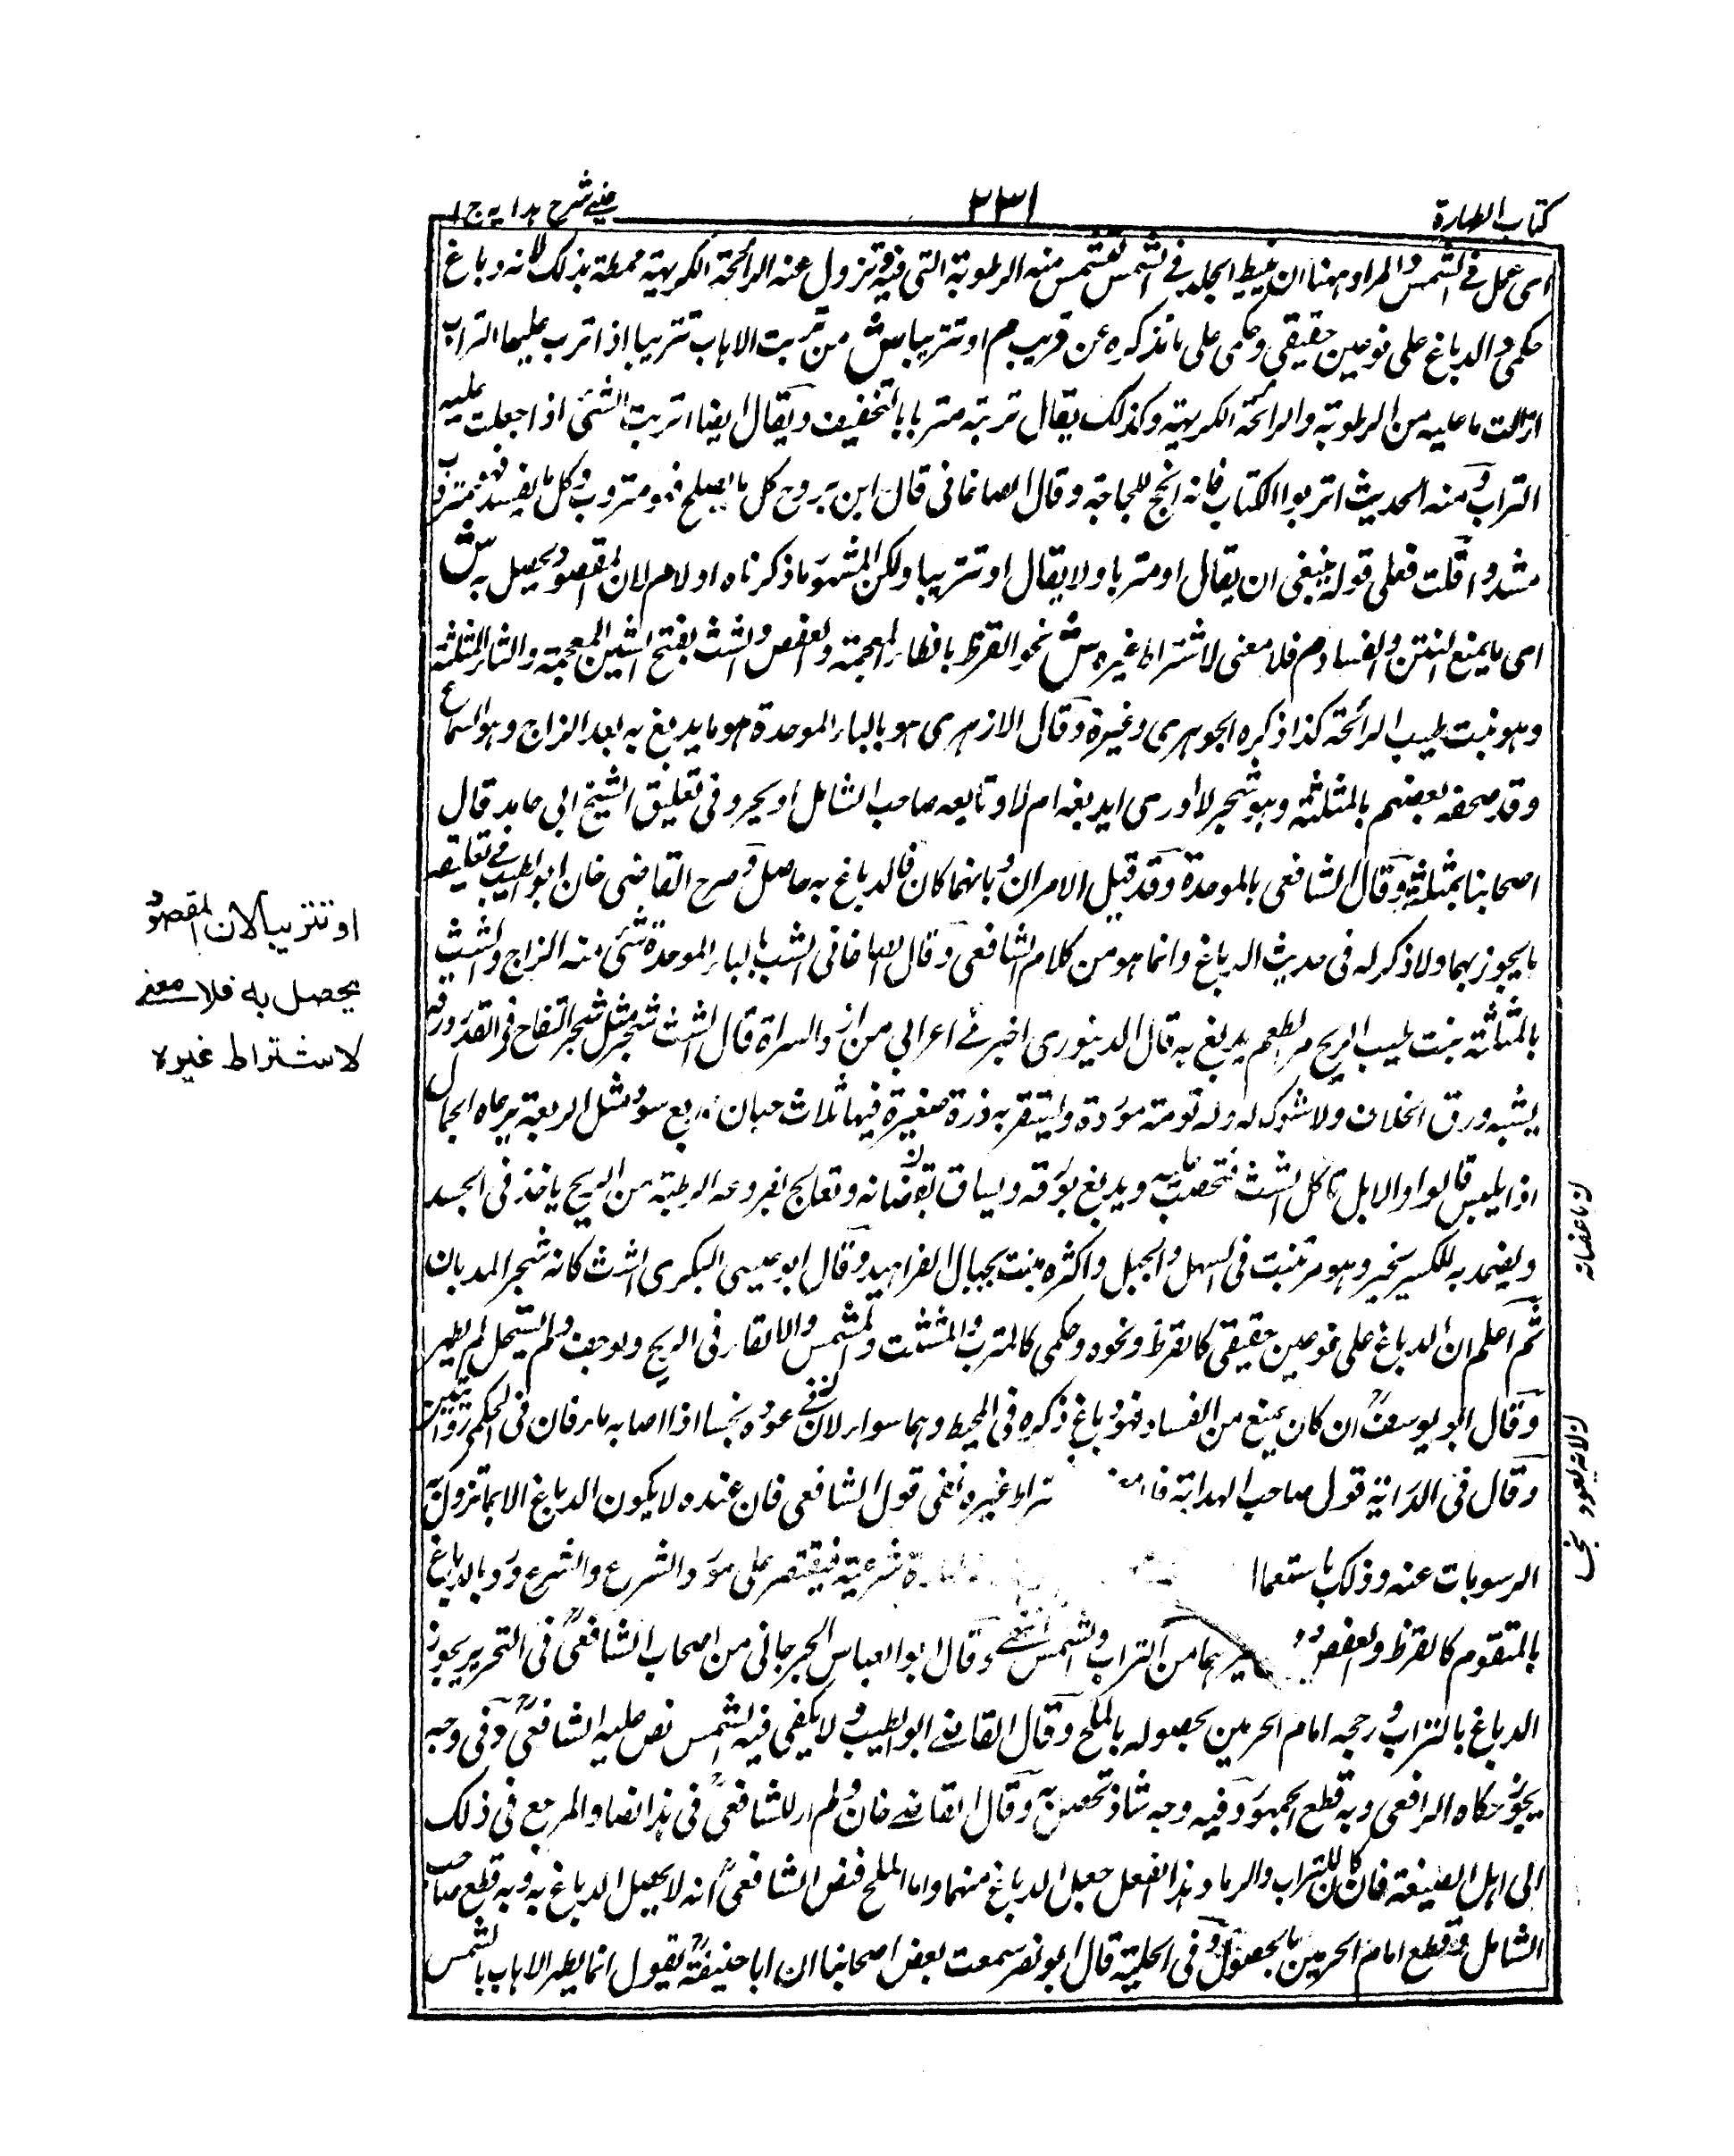 كتاب الطهارة
٢٣١
عینی شرح ہدایہ ج ١
اى عمل فى الشمس والمراد ههنا ان يبسط الجلد فى الشمس لتشمس منه الرطوبة التى فيه وتزول عنه الرائحة الكريهة بذلك لانه دباغ
حكمى والدباغ على نوعين حقيقى وحكمى على ما نذكره عن قريب م او تتريبا ش من تربت الاهاب تتريبا اذا اترب عليها التراب
ازالت ما عليه من الرطوبة والرائحة الكريهة وكذلك يقال تربته متربا بالتخفيف ويقال ايضا اتربت الشئ اذا جعلت عليه
التراب ومنه الحديث اتربوا الكتاب فانه انجح للحاجة وقال الصاغانى قال ابن بزرج كل ما يصلح فهو متروب وكل ما يفسد فهو مترب
مشددا قلت فعلى قوله ينبغى ان يقال او متربا ولا يقال او تتريبا ولكن المشهور ما ذكرناه اولا م لان المقصود يحصل به ش
اى ما يمنع النتن والفساد م فلا معنى لاشتراط غيره ش نحو القرظ بالظاء المعجمة والعفص والشث بفتح الشين المعجمة والثاء المثلثة
وهو نبت طيب الرائحة كذا ذكره الجوهرى وغيره وقال الازهرى هو بالباء الموحدة هو ما يدبغ به بعد الزاج وهو السماع
وقد صحفه بعضهم بالمثلثة وهو شجر لا ادرى ايدبغ ام لا وتابعه صاحب الشامل و وفى تعليق الشيخ ابى حامد قال
اصحابنا بمثلثة وقال الشافعى بالموحدة وقد قيل الامران وبايهما كان فالدباغ به حاصل وصرح القاضى خان ابو الطيب فى تعليقه
بانه يجوز بهما ولا ذكر له فى حديث الدباغ وانما هو من كلام الشافعى وقال الصاغانى الشب بالباء الموحدة شئ منه الزاج والشث
بالمثلثة نبت طيب الريح مر الطعم يدبغ به قال الدينورى اخبرنى اعرابى من ازد السراة قال الشث شجر مثل شجر التفاح فى القدر ورقه
يشبه ورق الخلاف ولا شوك له وله موردة صغيرة فيها ثلاث حبات اربع سود مثل ترعاه الجبال
اذا يبس قالوا والابل تاكل الشث فتخصب عليه ويدبغ بورقه ويساق باغصانه وتعالج بفروعه الرطبة من الريح ياخذ فى الجسد
ويضمد به للكسير فيجبر وهو مر ينبت فى السهل والجبل واكثره منبت بجبال وقال ابو عيسى البكرى الشث كانه شجر
ثم اعلم ان الدباغ على نوعين حقيقى كالقرظ ونحوه وحكمى كالمترب والمشمس والالقاء فى الريح ولو جف ولم يستحل لم يطهر
وقال ابو يوسف ان كان يمنع من الفساد فهو دباغ ذكره فى المحيط وهما سواء لان فى عوده نجسا اذا اصابه ماء فان فى الحكمى روايتين
وقال فى الدراية قول صاحب الهداية فلا تراط غيره نفى قول الشافعى فان عنده لا يكون الدباغ الا بما تزول به
الرسوبات عنه وذلك باستعما شرعية فيقتصر على مورد الشرع والشرع ورد بالدباغ
بالمتقوم كالقرظ والعفص غيرهما من التراب والشمس انتهى وقال ابو العباس الجرجانى من اصحاب الشافعى فى التحرير يجوز
الدباغ بالتراب ورجحه امام الحرمين بحصوله بالملح وقال القاضى ابو الطيب ولا يكفى فيه الشمس نص عليه الشافعى وفى وجه
يجوز حكاه الرافعى وبه قطع الجمهور وفيه وجه شاذ تحصل به وقال القاضى خان ولم ار للشافعى فى هذا نصا والمرجع فى ذلك
الى اهل الصنعة فان كان للتراب والرماد هذا الفعل حصل الدباغ منهما واما الملح فنص الشافعى انه لا يحصل الدباغ به وبه قطع صاحب
الشامل وقطع امام الحرمين بالحصول وفى الحلية قال ابو نصر سمعت بعض اصحابنا ان ابا حنيفة يقول انما يطهر الاهاب بالشمس
او تتريبا لان المقصود
يحصل به فلا معنى
لاشتراط غيره
ن باغضانه
ن لانه يعود نجسا